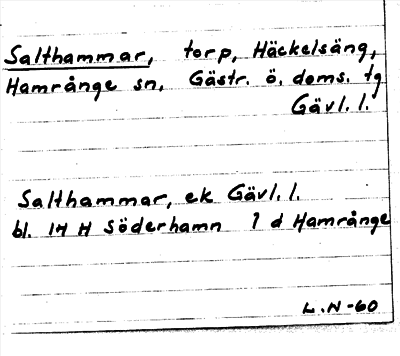 Salthammar, torp, Häckelsäng,
Hamrånge sn, Gästr. ö. doms. tg
Gävl. l.
Salthammar, ek Gävl. l.
bl. 14 H Söderhamn 1 d Hamrånge
L.N-60